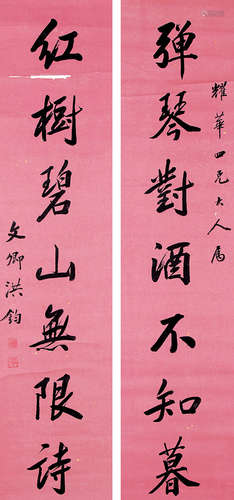 耀華四兄大人屬
弹琴對酒不知暮
紅樹碧山無限詩
文卿洪鈞